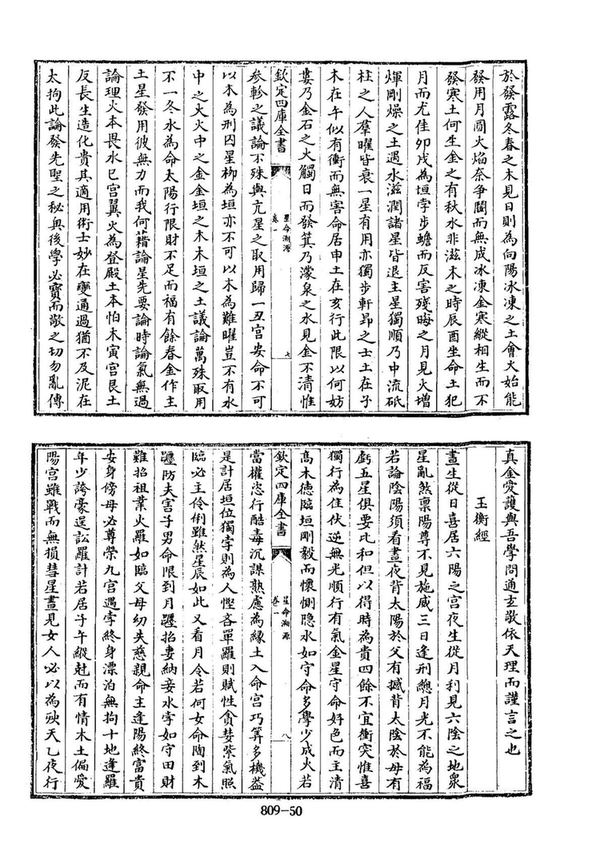 於發露冬春之木見日則為向陽冰凍之土會火始能
發用月圓火焰祭爭鬭而無成冰凍金寒縱相生而不
發寒土何生金之有秋水非滋木之時辰酉坐命土犯
月而尤佳卯戌為垣孛步蟾而反害殘晦之月見火增
煇剛燥之土遇水滋潤諸星皆退主星獨順乃中流砥
柱之人羣曜皆衰一星有用亦獨步軒昻之士土在子
木在午似有衝而無害命居申土在亥行此限以何妨
婁乃金石之火觸日而發箕乃濛泉之水見金不清惟
欽定四庫全書
星命溯源
卷一
七
參軫之議論不殊與亢星之取用歸一丑宮安命不可
以木為刑囚星柳為垣亦不可以木為難曜豈不有水
中之火火中之金金垣之木木垣之土議論萬殊取用
不一冬水為命太陽行限財不足而福有餘春金作主
土星發用彼無力而我何藉論星先要論時論氣無過
論理火本畏水巳宮翼火為登殿土本怕木寅宮艮土
反長生造化貴其適用術士妙在變通過猶不及泥在
太拘此論發先聖之秘奥後學必寶而敬之切勿亂傳
真金愛護與吾學問通玄敬依天理而謹言之也
玉衡經
晝生從日喜居六陽之宮夜生從月利見六陰之地衆
星亂煞禀陽尊不見施威三日逢刑緫月光不能為福
若論陰陽須看晝夜背太陽於父有撼背太陰於母有
虧五星俱要比和但以得時為貴四餘不宜衝突惟喜
獨行為佳伏逆無光順行有氣金星守命好色而主清
高木德臨垣剛毅而懷惻隱水如守命多學少成火若
欽定四庫全書
星命溯源
卷一
八
當權忿行酷毒沉謀熟慮為緣土入命宮巧筭多機蓋
是計居垣位獨孛則為人慳吝單羅則賦性貪婪紫氣照
臨必主伶俐雖然星辰如此又看月令若何女命陶到木
躔防夫害子男命限到月躔招妻納妾水孛如守田財
難招祖業火羅如臨父母幼失慈親命主逢陽終富貴
妾身傍母必尊榮九宮遇孛終身漂泊無拘十地逢羅
年少誇豪逞訟羅計若居子午縱尅而有情木土偏愛
陽宮雖戰而無損彗星晝見女人必以為殃天乙夜行
809-50